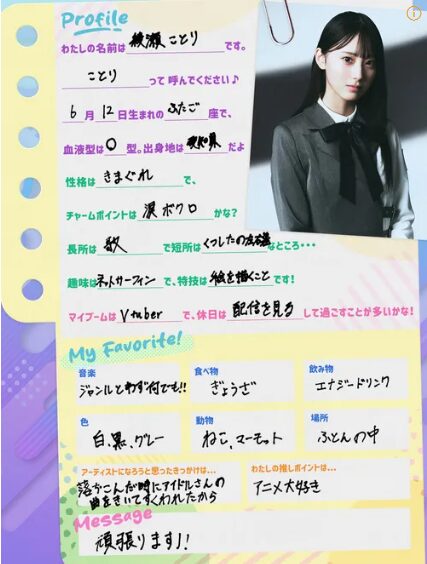 Profile
わたしの名前は 綾瀬 ことり です。
ことり って呼んでください♪
6 月 12 日生まれの ふたご 座で、
血液型は O 型。出身地は 愛知県 だよ
性格は きまぐれ で、
チャームポイントは 涙ボクロ かな?
長所は 歌 で短所は くつしたの なところ・・・
趣味は ネットサーフィン で、特技は 絵を描くこと です!
マイブームは Vtuber で、休日は 配信を見る して過ごすことが多いかな!
My Favorite!
音楽 食べ物 飲み物
ジャンルとわず何でも!! ぎょうざ エナジードリンク
色 動物 場所
白、黒、グレー ねこ、マーモット ふとんの中
アーティストになろうと思ったきっかけは... わたしの推しポイントは...
落ちこんだ時にアイドルさんの アニメ大好き
曲をきいてすくわれたから
Message
頑張ります!!